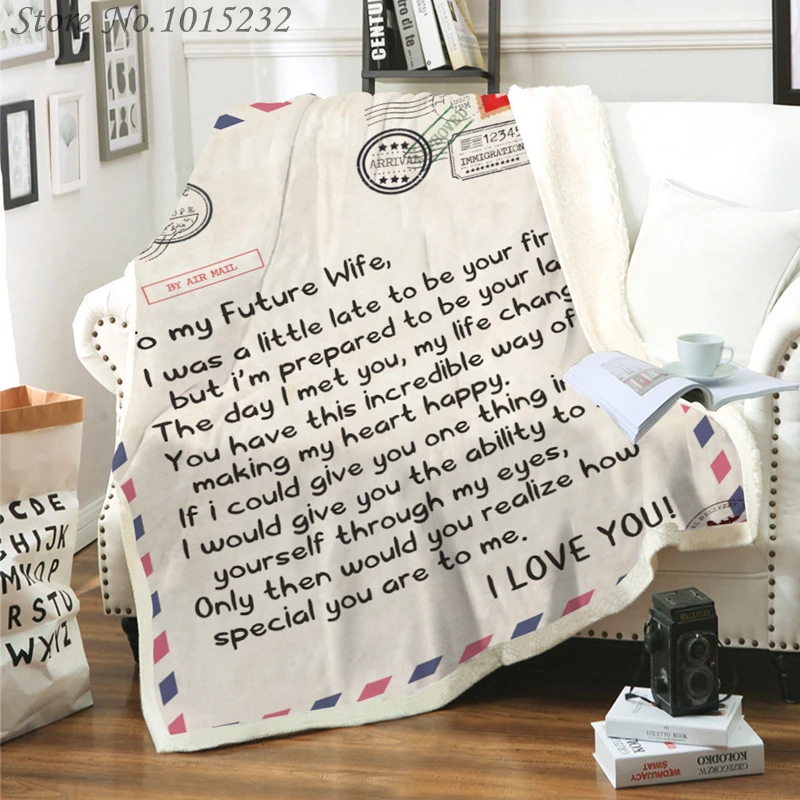 Store No.1015232
CENTURY
ARRIVAL
12345
IMMIGRATION
BY AIR MAIL
o my Future Wife,
I was a little late to be your fir
but i'm prepared to be your la
The day I met you, my life chang
You have this incredible way of
making my heart happy.
If i could give you one thing in
I would give you the ability to
yourself through my eyes,
Only then would you realize how
special you are to me.
I LOVE YOU!
CDE
GHIJK
MNOP
RSTU
WXYZ
ROLLEIFLEX
GRZEGORZEW. KOŁODKO
WĘDRUJĄCY ŚWIAT